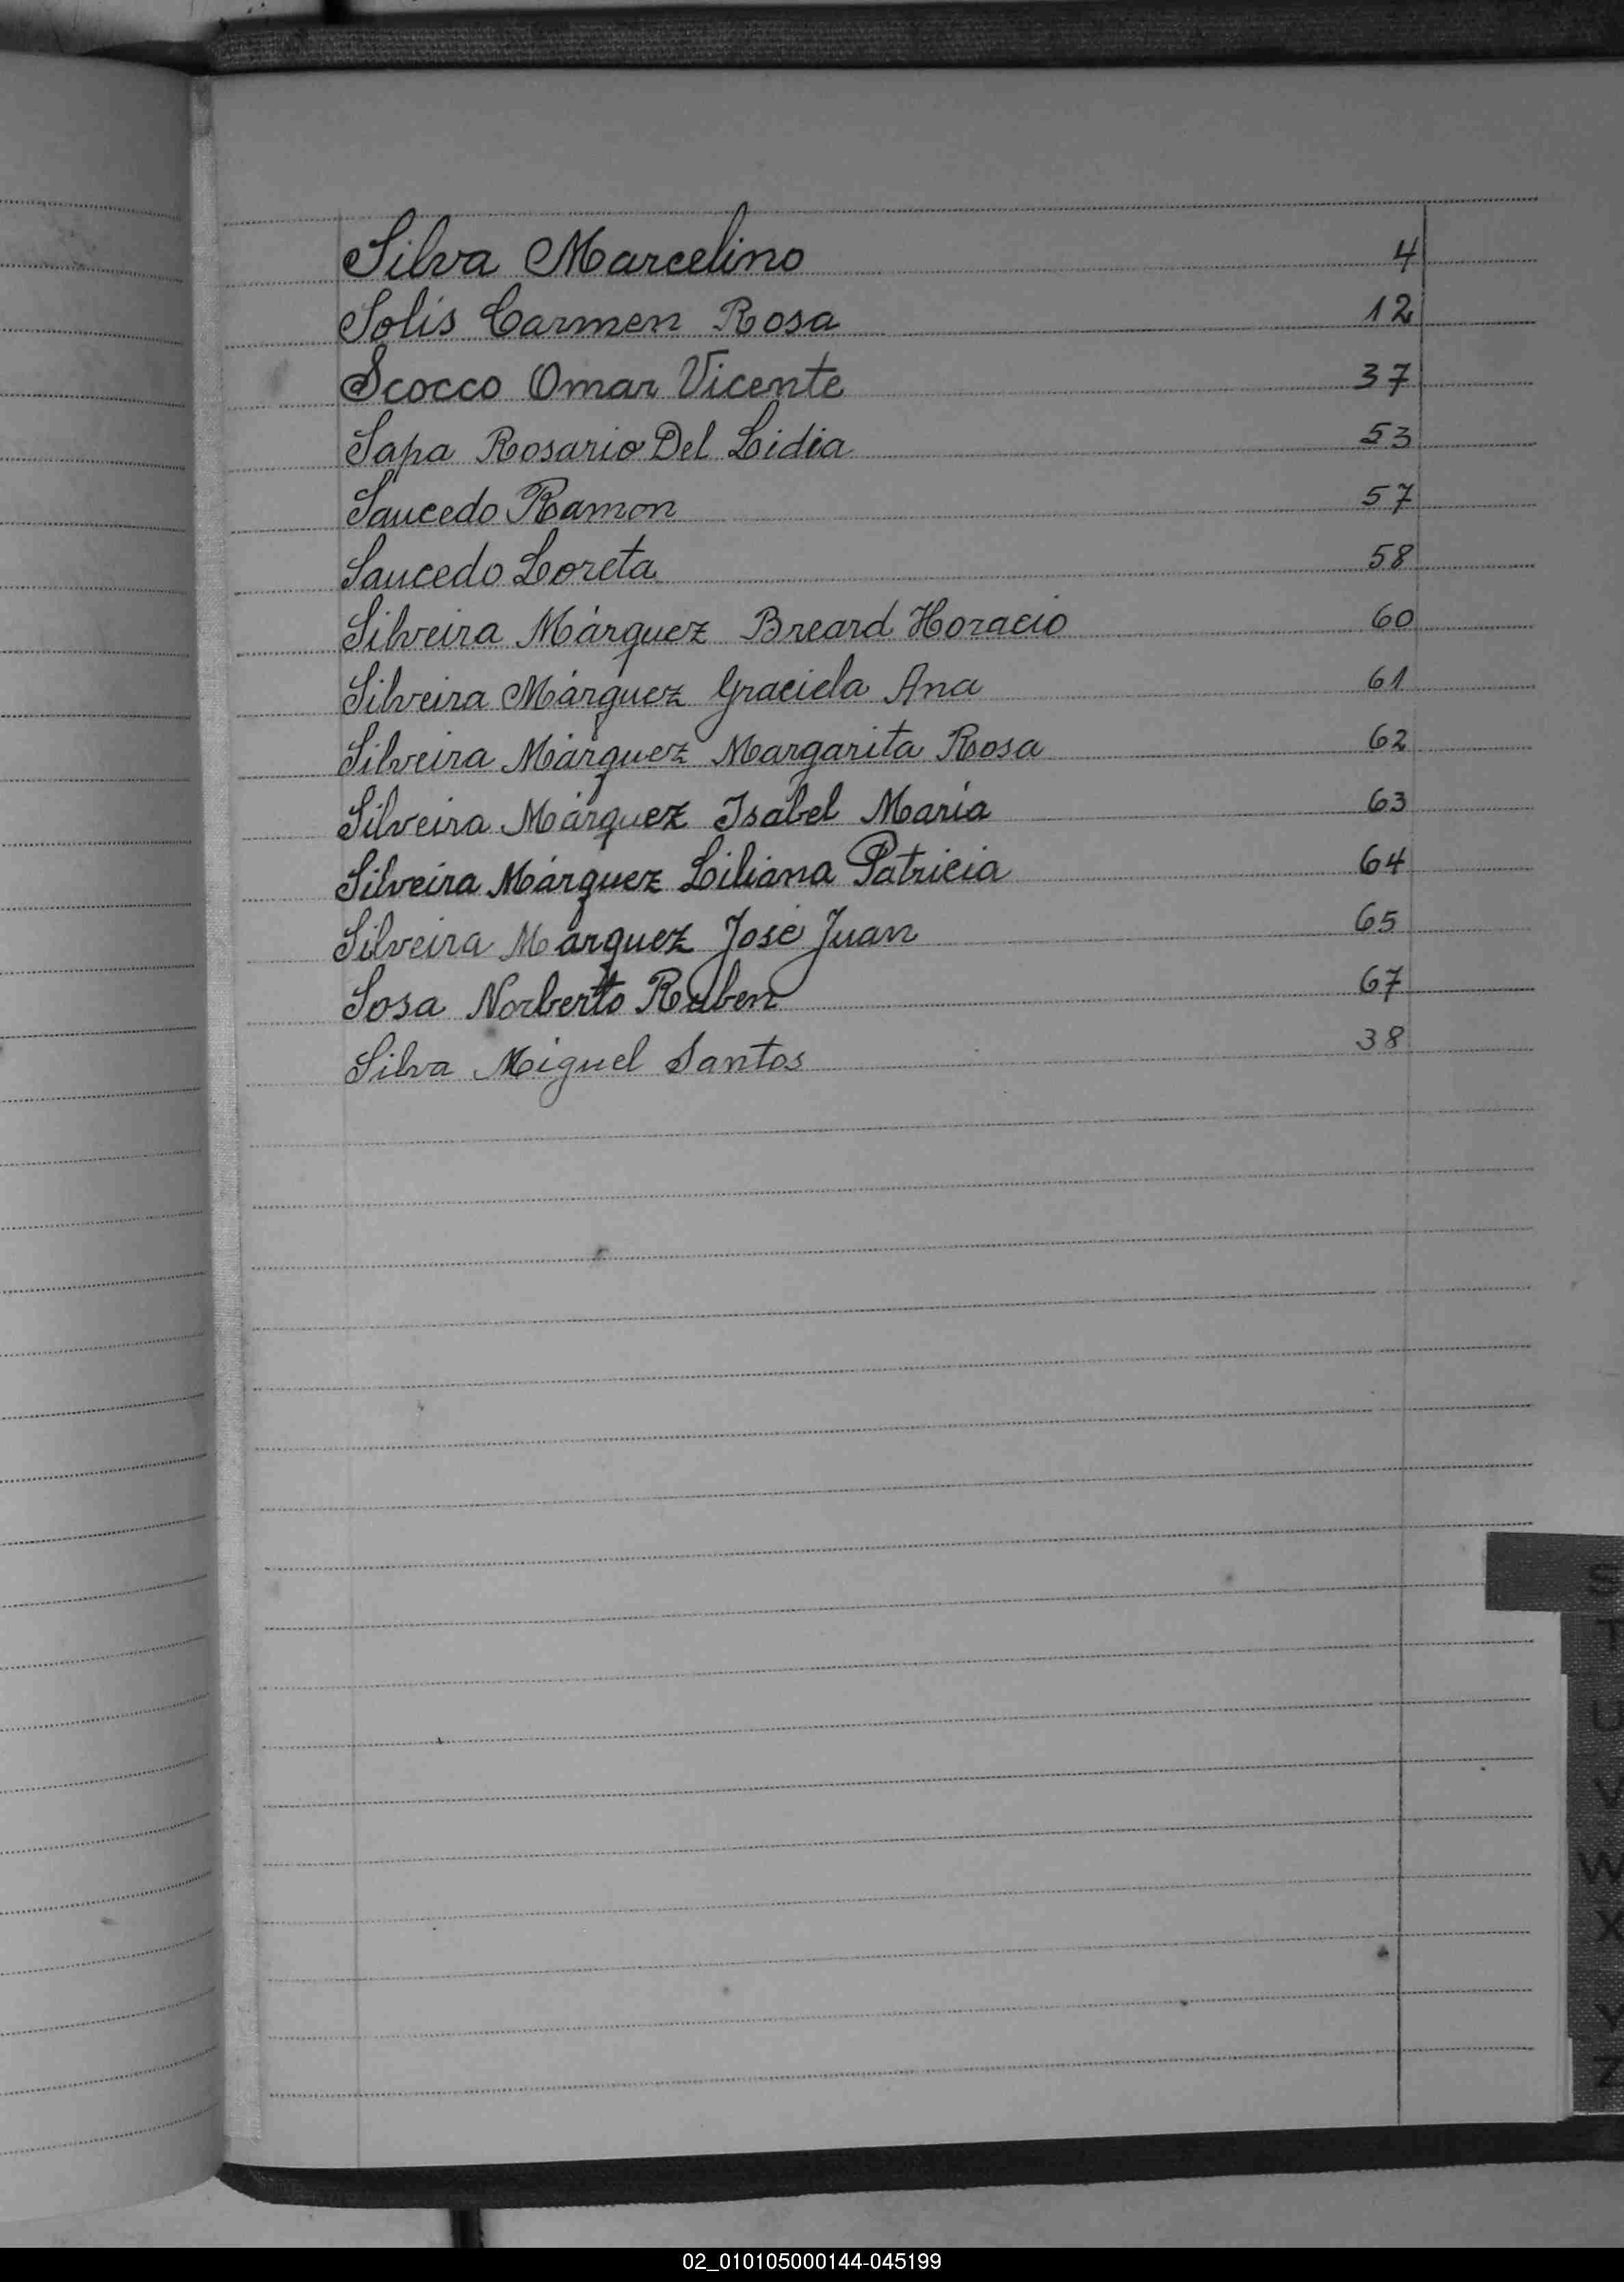 Silva Marcelino 4
Solís Carmen Rosa 12
Scocco Omar Vicente 37
Sapa Rosario Del Lidia 53
Saucedo Ramon 57
Saucedo Loreta 58
Silveira Márquez Breard Horacio 60
Silveira Márquez Graciela Ana 61
Silveira Márquez Margarita Rosa 62
Silveira Márquez Isabel María 63
Silveira Márquez Liliana Patricia 64
Silveira Marquez José Juan 65
Sosa Norberto Ruben 67
Silva Miguel Santos 38
S
T
U
V
W
X
Y
Z
02_010105000144-045199